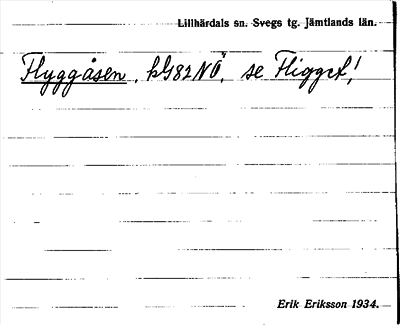 Lillhärdals sn. Svegs tg. Jämtlands län.
Flyggåsen, kG82NÖ, se Fligget!
Erik Eriksson 1934.